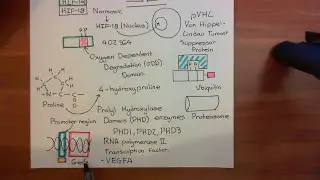 HIF-1β
Normoxic
HIF-1α (Nucleus)
pVHL
Von Hippel-
Lindau Tumour
Suppressor
Protein
402 564
Oxygen Dependent
Degradation (ODD)
Domain
4-hydroxyproline
Ubiquitin
Proteasome
Proline
Prolyl Hydroxylase
Domain (PHD) enzymes
PHD1, PHD2, PHD3
Promoter region
RNA polymerase II
Transcription Factor
-VEGFA
Gene